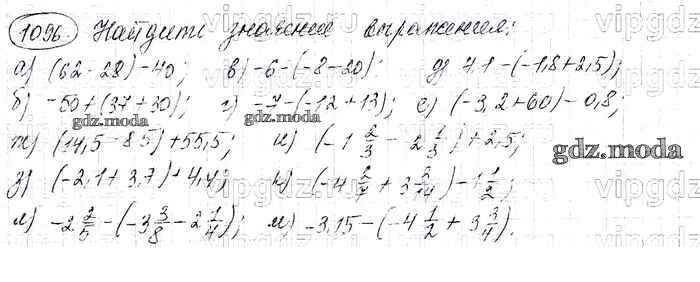 1096 Найдите значение выражения:
а) (62-28)-40; в) -6-(-8-20): д) 4,1-(-1,8+2,5);
б) -50+(37+30); г) -7-(-12+13); е) (-3,2+60)-0,8;
ж) (14,5-8,5)+55,5; и) (-1 2/3 - 2 1/3)+2,5;
з) (-2,1+3,7)+4,4; к) 3 -1 1/2;
л) -2 2/5-(-3 3/8-2 1/4); м) -3,15-(-4 1/2+3 3/4).
gdz.moda
gdz.moda
gdz.moda
vipgdz